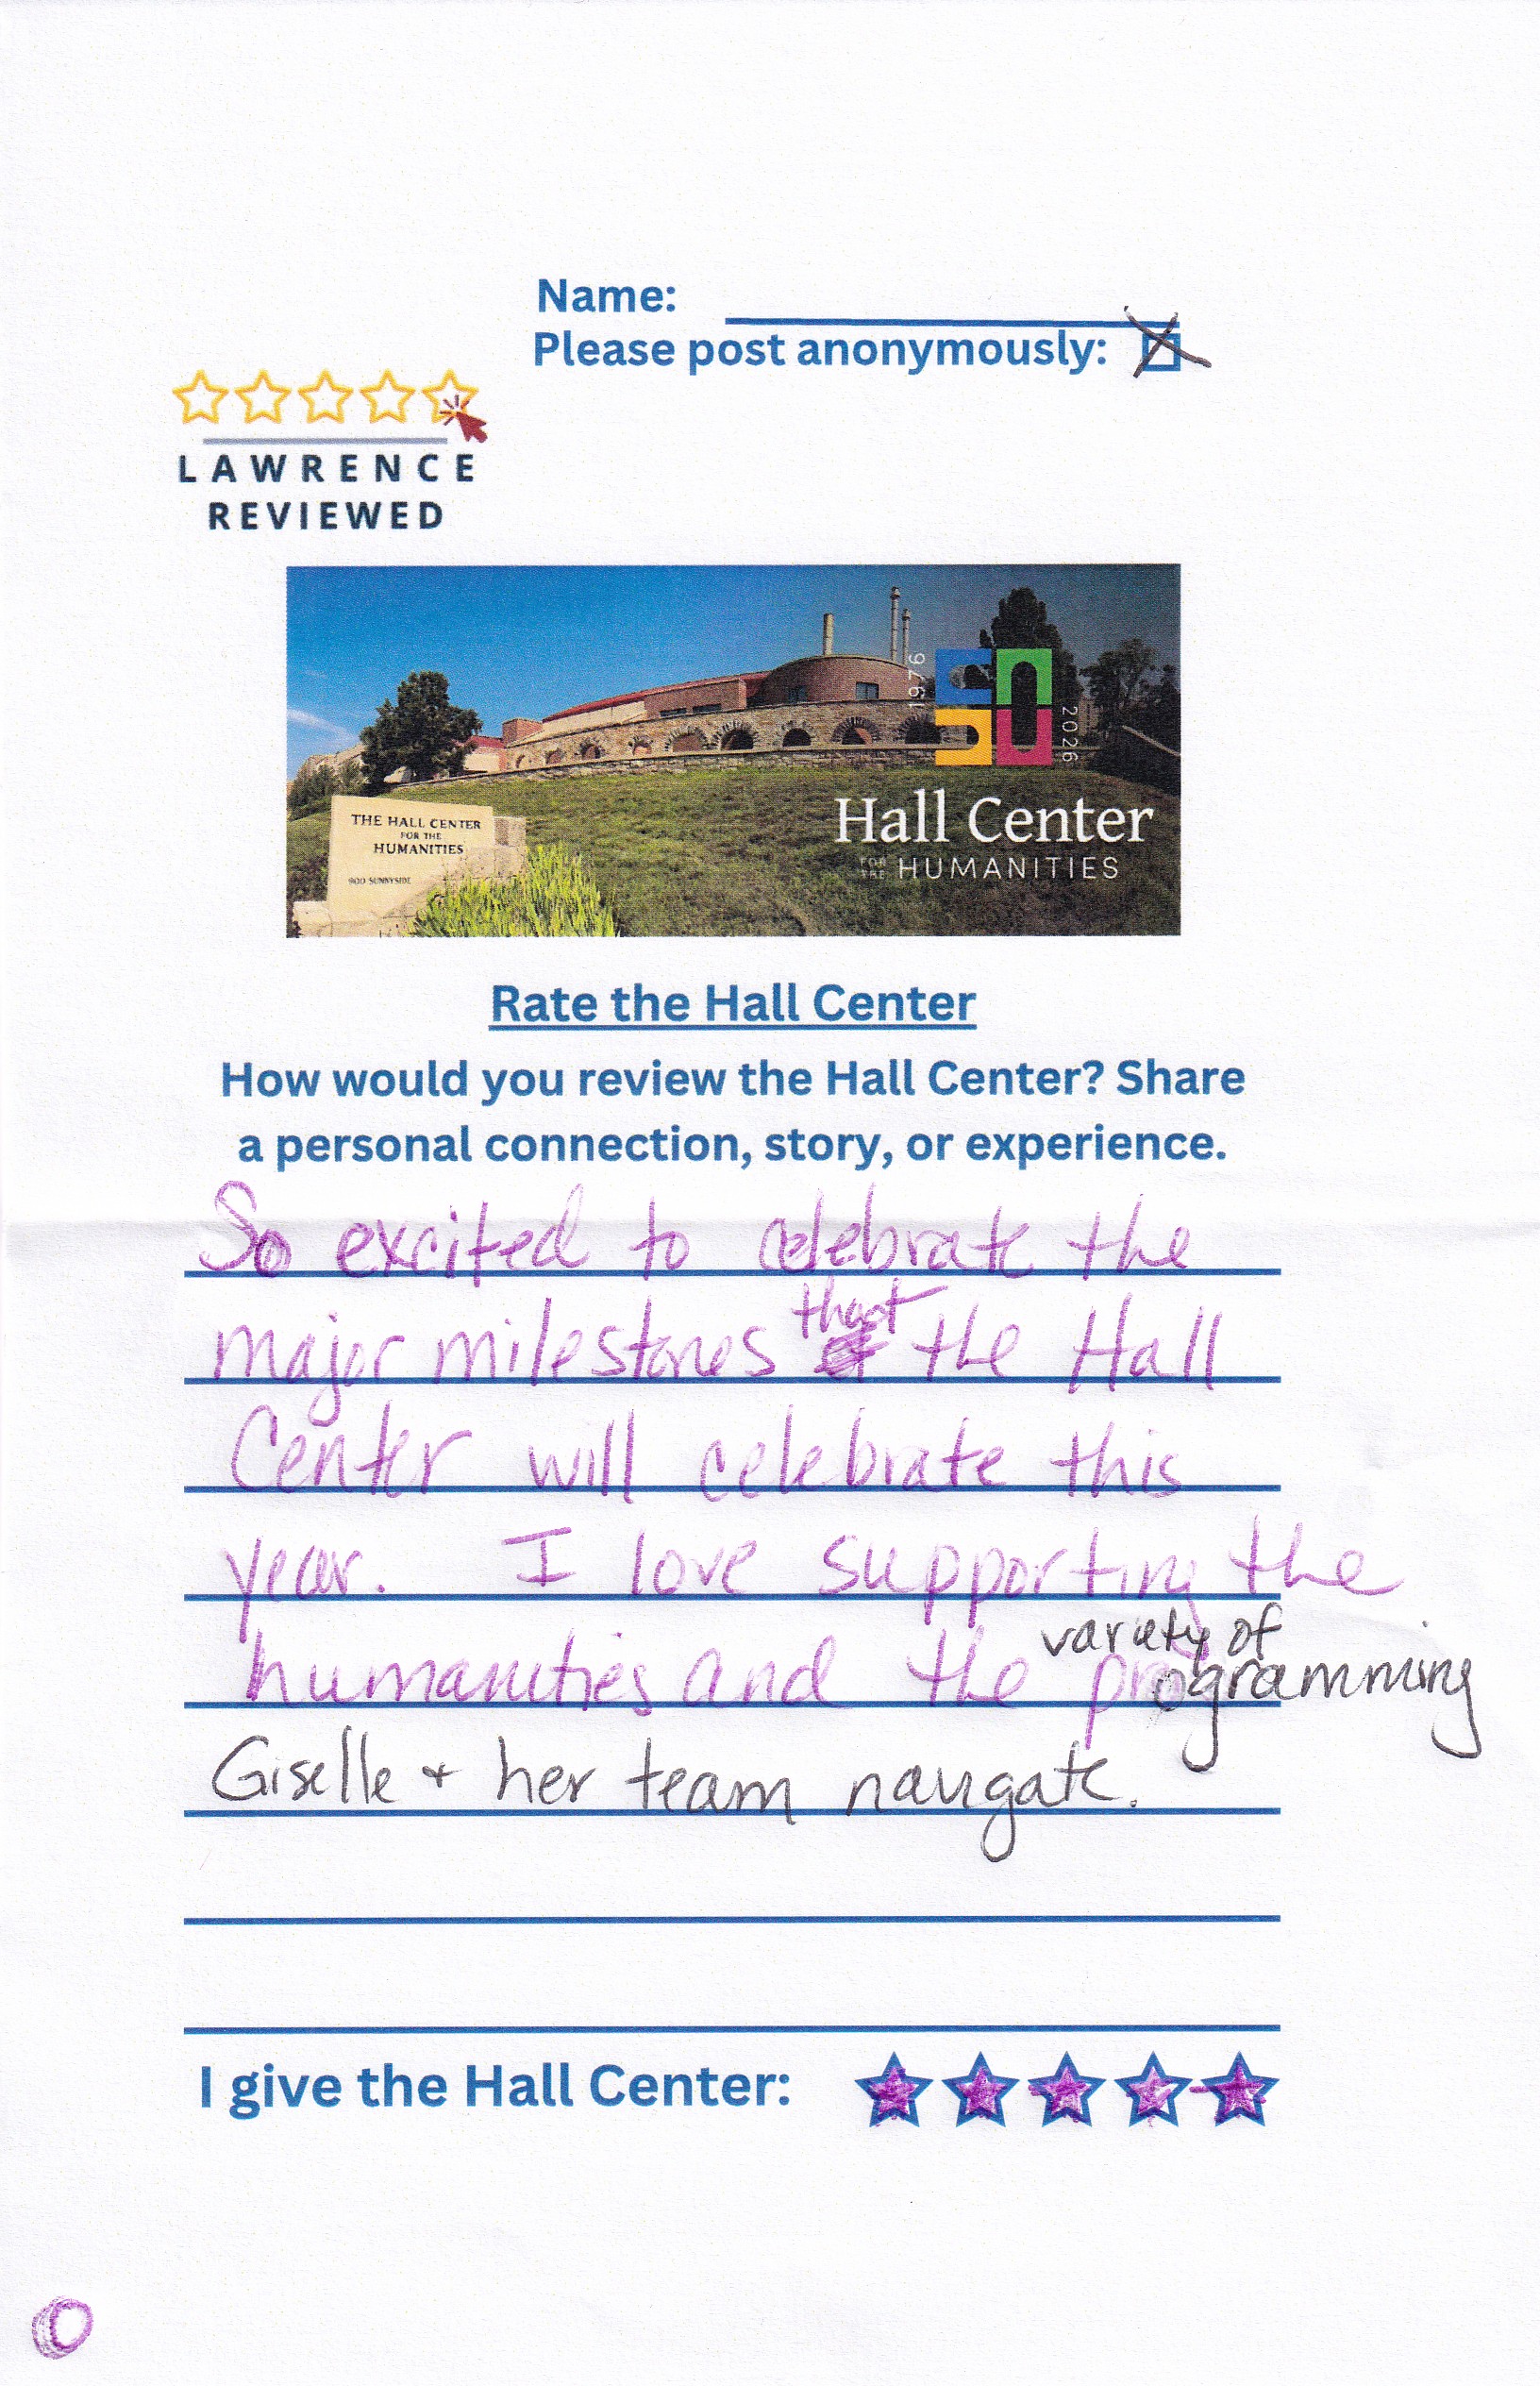 Name:
Please post anonymously:
LAWRENCE
REVIEWED
1976
50
2026
THE HALL CENTER
FOR THE
HUMANITIES
900 SUNNYSIDE
Hall Center
FOR THE HUMANITIES
Rate the Hall Center
How would you review the Hall Center? Share
a personal connection, story, or experience.
So excited to celebrate the
major milestones that the Hall
Center will celebrate this
year. I love supporting the
humanities and the variety of programming
Giselle + her team navigate.
I give the Hall Center: